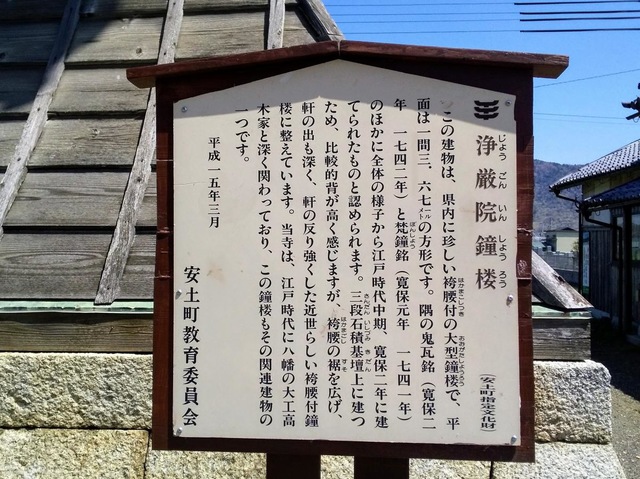 浄厳院鐘楼
じょうごんいんしょうろう
（安土町指定文化財）
この建物は、県内に珍しい袴腰付の大型鐘楼で、平
はかまごしつき
おおがたしょうろう
面は一間三、六七メートルの方形です。隅の鬼瓦銘（寛保二
年　一七四二年）と梵鐘銘（寛保元年　一七四一年）
ぼんしょう
のほかに全体の様子から江戸時代中期、寛保二年に建
てられたものと認められます。三段石積基壇上に建つ
さんだんいしづみきだん
ため、比較的背が高く感じますが、袴腰の裾を広げ、
はかまごし
すそ
軒の出も深く、軒の反り強くした近世らしい袴腰付鐘
楼に整えています。当寺は、江戸時代に八幡の大工高
木家と深く関わっており、この鐘楼もその関連建物の
一つです。
平成一五年三月
安土町教育委員会